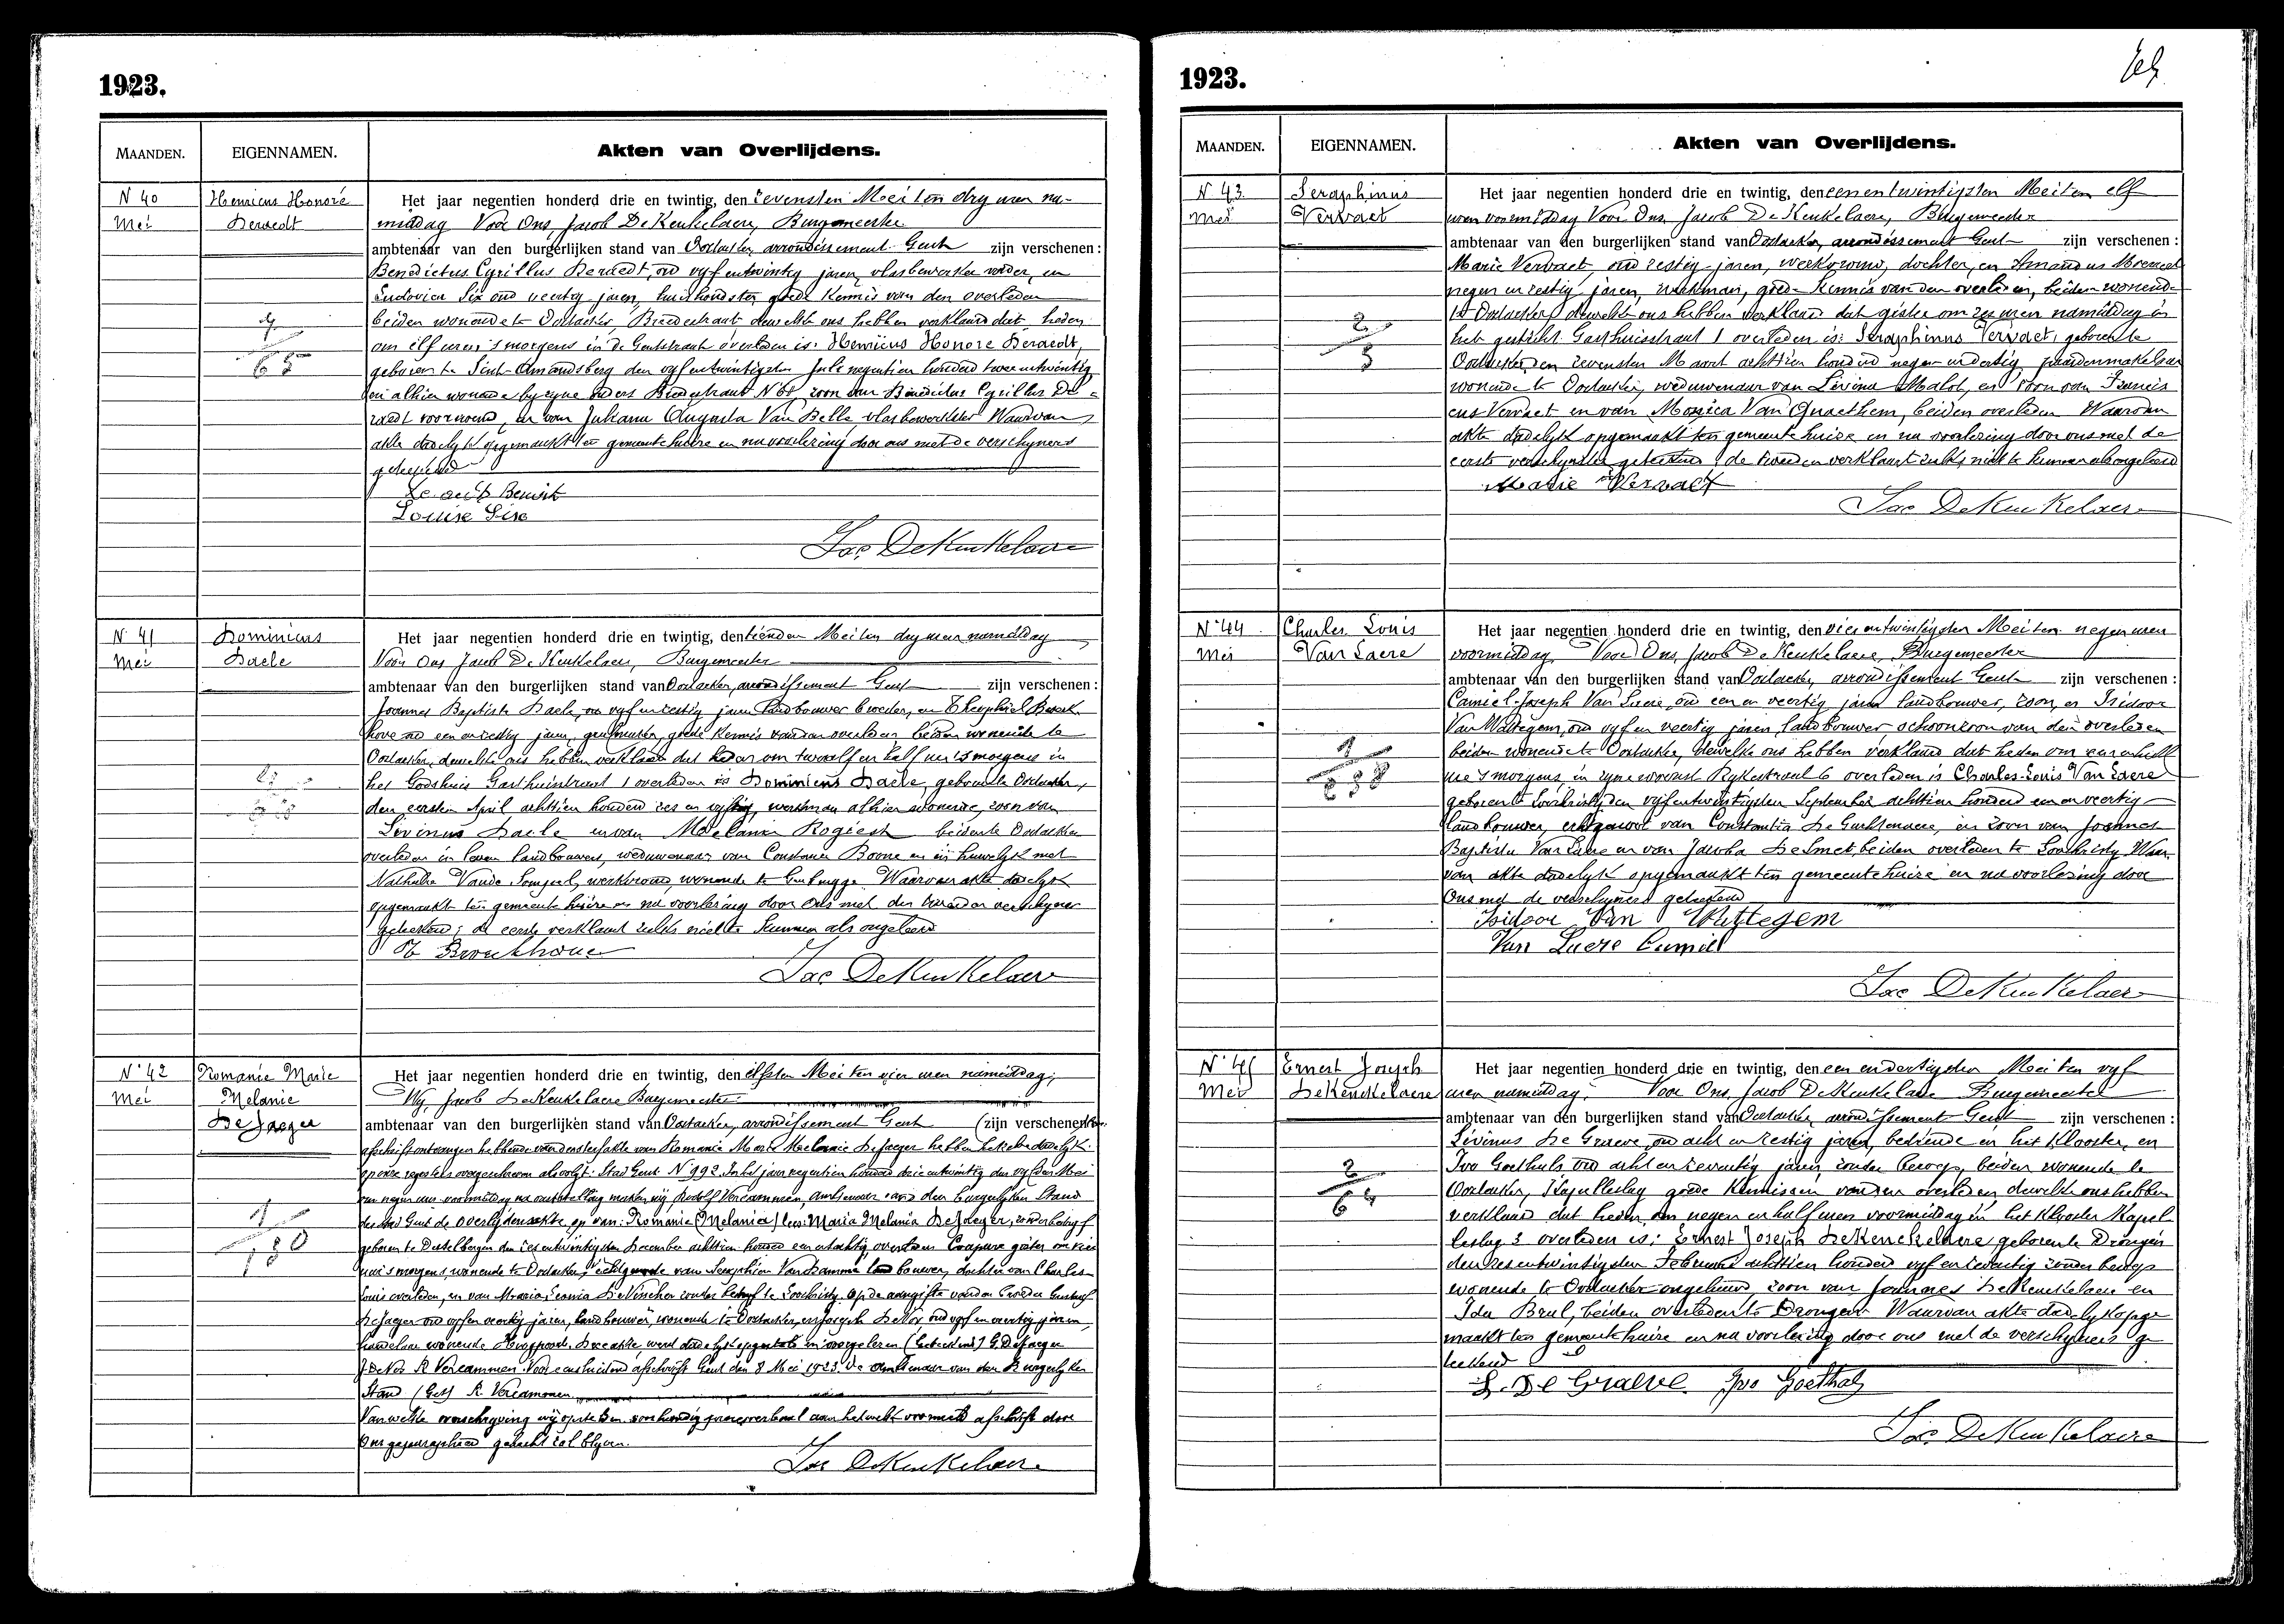 1923.
MAANDEN.
EIGENNAMEN.
Akten van Overlijdens.
N 40
Mei
Henricus Honoré
Deraedt
Het jaar negentien honderd drie en twintig, den zevensten Mei ten dry uren na-
middag Voor Ons, Jacob De Keukelaere, Burgemeester
ambtenaar van den burgerlijken stand van Oostacker, arrondissement Gent zijn verschenen:
Benedictus Cyrillus Deraedt, oud vyf en twintig jaren, vlasbewerker vader, en
Ludovica Six oud veertig jaren, huishoudster goede kennis van den overleden
beiden wonende te Oostacker, dewelke ons hebben verklaard dat heden
om elf uren 's morgens in de Gentstraat overleden is: Henricus Honore Deraedt,
geboren te Sint-Amandsberg den vyf en twintigsten Juli negentien honderd twee en twintig
en alhier wonende by zyne ouders zoon van Benedictus Cyrillus De-
raedt voornoemd, en van Juliana Augusta Van Belle, vlasbewerkster Waarvan
akte dadelyk opgemaakt ten gemeente huize en na voorlezing door ons met de verschyners
geteekend
Louise Six
Jac DeKeukelaere
N 41
Mei
Dominicus
Daele
Het jaar negentien honderd drie en twintig, den tienden Mei ten dry uren namiddag
Voor Ons Jacob De Keukelaere, Burgemeester
ambtenaar van den burgerlijken stand van Oostacker, arrondissement Gent zijn verschenen:
Joannes Baptiste Daele, oud vyf en zestig jaren landbouwer broeder, en Theophiel Broeck
hove oud een en jaren, goede kennis van den overleden beiden wonende te
Oostacker, dewelke ons hebben verklaard dat heden om twaalf en half ure 's morgens in
het Godshuis Gasthuisstraat 1 overleden is Dominicus Daele, geboren te Oostacker,
den eersten April achttien honderd zes en vyftig, werkman alhier wonende, zoon van
Livinus Daele en van Melanie Rogiest beiden te Oostacker
overleden in leven landbouwers, weduwenaar van Constancia Boone en in huwelyk met
Nathalie Vande , werkvrouw, wonende te Gentbrugge Waarvan akte dadelyk
opgemaakt ten gemeente huize en na voorlezing door Ons met den tweeden verschyner
geteekend; de eerste verklaart zulks niet te kunnen als ongeleerd
Th Broeckhove
Jac DeKeukelaere
N 42
Mei
Romanie Marie
Melanie
De Jaeger
Het jaar negentien honderd drie en twintig, den elfsten Mei ten vier uren namiddag;
Wy, Jacob De Keukelaere Burgemeester
ambtenaar van den burgerlijken stand van Oostacker, arrondissement Gent (zijn verschenen
afschrift ontvangen hebbende van de sterfakte van Romanie Marie Melanie De Jaeger hebben dadelyk
op onze registers overgeschreven als volgt: Stad Gent N 992 In het jaar negentien honderd drie en twintig den vyfden Mei
om negen uren voormiddag na vaststelling maken wij Rodolf Vercammen ambtenaar van den Burgerlyken Stand
der stad Gent de overlijdensakte op van: Romanie (Melania) lees: Maria Melania De Jaeger, zonder bedryf
geboren te Destelbergen den zes en twintigsten December achttien honderd een en tachtig, overleden Coupure gister om vier
uren 's morgens, wonende te Oostacker, echtgenoote van Seraphien Van Damme landbouwer, dochter van Charles
Louis overleden, en van Maria Leonia De Vincker zonder bedryf te Loochristy. Op de aangifte van den broeder Gustaaf
De Jaeger oud vyf en veertig jaren, landbouwer, wonende te Oostacker, en Joseph De Vos, oud vyf en veertig jaren
handelaar wonende Deze akte, werd dadelyk opgesteld en voorgelezen (Geteekend) G. De Jaeger
J De Vos R Vercammen Voor eensluidend afschrift Gent den 8 Mei 1923. De ambtenaar van den Burgerlyken
Stand (Get) R. Vercammen
Van welke overschryving wy opstellen voorhandig procesverbaal aan hetwelk voormeld afschrift door
Ons geparapheerd gehecht zal blyven.
Jac DeKeukelaere
1923.
MAANDEN.
EIGENNAMEN.
Akten van Overlijdens.
N 43
Mei
Seraphinus
Vervaet
Het jaar negentien honderd drie en twintig, den een en twintigsten Mei ten elf
uren voormiddag Voor Ons, Jacob De Keukelaere, Burgemeester
ambtenaar van den burgerlijken stand van Oostacker, arrondissement Gent zijn verschenen:
Marie Vervaet, oud zestig jaren, werkvrouw, dochter, en Amandus
negen en zestig jaren, werkman, goede kennis van den overleden, beiden wonende
te Oostacker, dewelke ons hebben verklaard dat gister om zes uren namiddag in
het gesticht Gasthuisstraat 1 overleden is: Seraphinus Vervaet, geboren te
Oostacker den zevensten Maart achttien honderd negen en dertig, paardenmakelaar
wonende te Oostacker, weduwenaar van Livina Malot, en zoon van Francis
cus Vervaet en van Monica Van Quaethem, beiden overleden Waarvan
akte dadelyk opgemaakt ten gemeente huize en na voorlezing door ons met de
eerste verschynster geteekend, de tweede verklaart zulks niet te kunnen als ongeleerd
Marie Vervaet
Jac DeKeukelaere
N 44
Mei
Charles Louis
Van Laere
Het jaar negentien honderd drie en twintig, den vier en twintigsten Mei ten negen uren
voormiddag Voor Ons, Jacob De Keukelaere, Burgemeester
ambtenaar van den burgerlijken stand van Oostacker, arrondissement Gent zijn verschenen:
Camiel Joseph Van Laere, oud een en veertig jaren landbouwer, zoon, en Isidoor
Van Wattegem, oud vyf en veertig jaren, landbouwer schoonzoon van den overleden
beiden wonende te Oostacker, dewelke ons hebben verklaard dat heden om een en half
ure 's morgens, in zyne woonst Rykestraat 6 overleden is Charles-Louis Van Laere
geboren te Loochristy den vyf en twintigsten September achttien honderd een en veertig
landbouwer, echtgenoot van Constantia De Guchtenaere, en zoon van Joannes
Baptista Van Laere en van Jacoba De Smet, beiden overleden te Loochristy Waar
van akte dadelyk opgemaakt ten gemeente huize en na voorlezing door
Ons met de verschyners geteekend
Isidoor Van Wattegem
Van Laere Camiel
Jac DeKeukelaere
N 45
Mei
Ernest Joseph
DeKeuckelaere
Het jaar negentien honderd drie en twintig, den een en dertigsten Mei ten vyf
uren namiddag. Voor Ons, Jacob De Keukelaere Burgemeester
ambtenaar van den burgerlijken stand van Oostacker, arrondissement Gent zijn verschenen:
Livinus De Graeve, oud acht en zestig jaren, bediende in het Klooster, en
Ivo Goethals oud acht en zeventig jaren, zonder beroep, beiden wonende te
Oostacker, Kapelleslag goede kennissen van den overleden, dewelke ons hebben
verklaard dat heden, om negen en half uren voormiddag in het Klooster Kapel
leslag 3 overleden is: Ernest Joseph DeKeuckelaere geboren te Drongen
den zes en twintigsten Februari achttien honderd vyf en zeventig zonder beroep
wonende te Oostacker ongehuwd, zoon van Joannes De Keuckelaere en
Ida Brul, beiden overleden te Drongen Waarvan akte dadelyk opge
maakt ten gemeente huize en na voorlezing door ons met de verschyners ge
teekend
L. De Graeve. Ivo Goethals
Jac DeKeukelaere